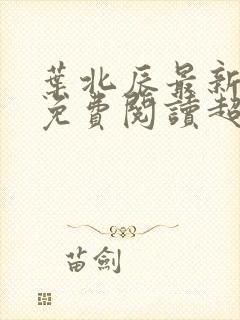 葉北辰最新
免費閱讀超
苗劍